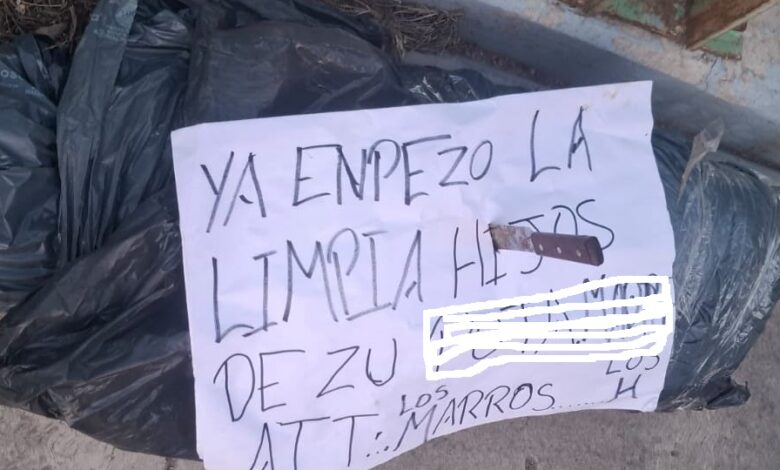 YA ENPEZO LA
LIMPIA HIJOS
DE ZU
ATT:.: LOS MARROS...... LOS H